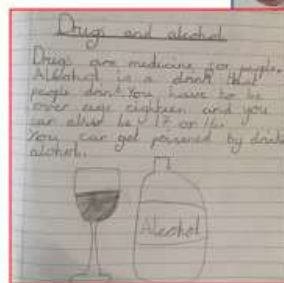 Drugs and alcohol
Drugs are medicine for people.
Alcohol is a drink that
people drink. You have to be
over age eighteen and you
can also be 17 or 16.
You can get poisoned by drink
alcohol.
Alcohol